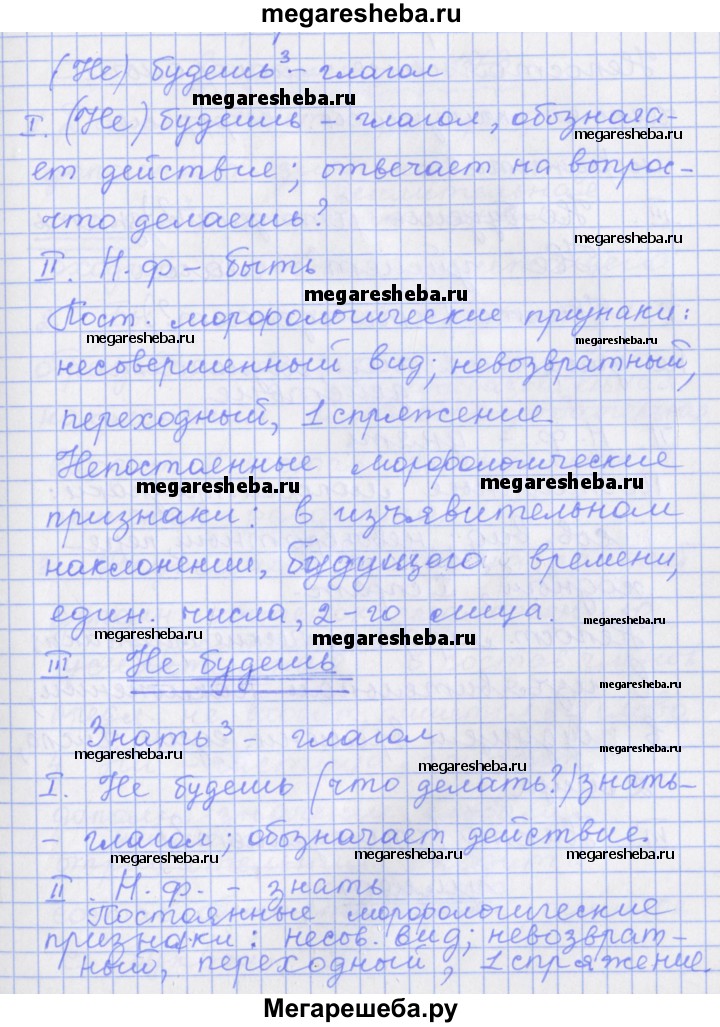 megaresheba.ru
(Не) будешь³ - глагол
megaresheba.ru
I. (Не) будешь - глагол, обознача-
megaresheba.ru
ет действие; отвечает на вопрос -
megaresheba.ru
что делаешь?
megaresheba.ru
II. Н.ф - быть
megaresheba.ru
Пост. морфологические признаки:
megaresheba.ru
megaresheba.ru
несовершенный вид; невозвратный,
переходный, 1 спряжение
Непостоенные морфологические
megaresheba.ru
megaresheba.ru
признаки: в изъявительном
наклонении, будущого времени,
един. числа, 2-го лица.
megaresheba.ru
megaresheba.ru
megaresheba.ru
III Не будешь
megaresheba.ru
Знать³ - глагол
megaresheba.ru
megaresheba.ru
megaresheba.ru
I. Не будешь (что делать?) знать -
- глагол; обозначает действие.
megaresheba.ru
megaresheba.ru
megaresheba.ru
II. Н.ф. - знать
Постоянные морфологические
признаки: несов. вид; невозврат-
ный, переходный, 1 спряжение.
Мегарешеба.ру